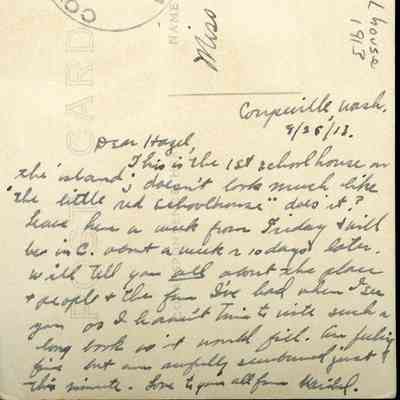 NAME
Miss
house
1913
POST CARD
Coupeville, Wash.
9/25/13.
Dear Hazel,
This is the 1st schoolhouse on
the island; doesn't look much like
"the little red schoolhouse" does it?
Leave here a week from Friday & will
be in C. about a week or 10 days later.
Will tell you all about the place
& people & the fun I've had when I see
you as I haven't time to write such a
long book as it would fill. Am feeling
fine but am awfully sunburned just
this minute. Love to you all from